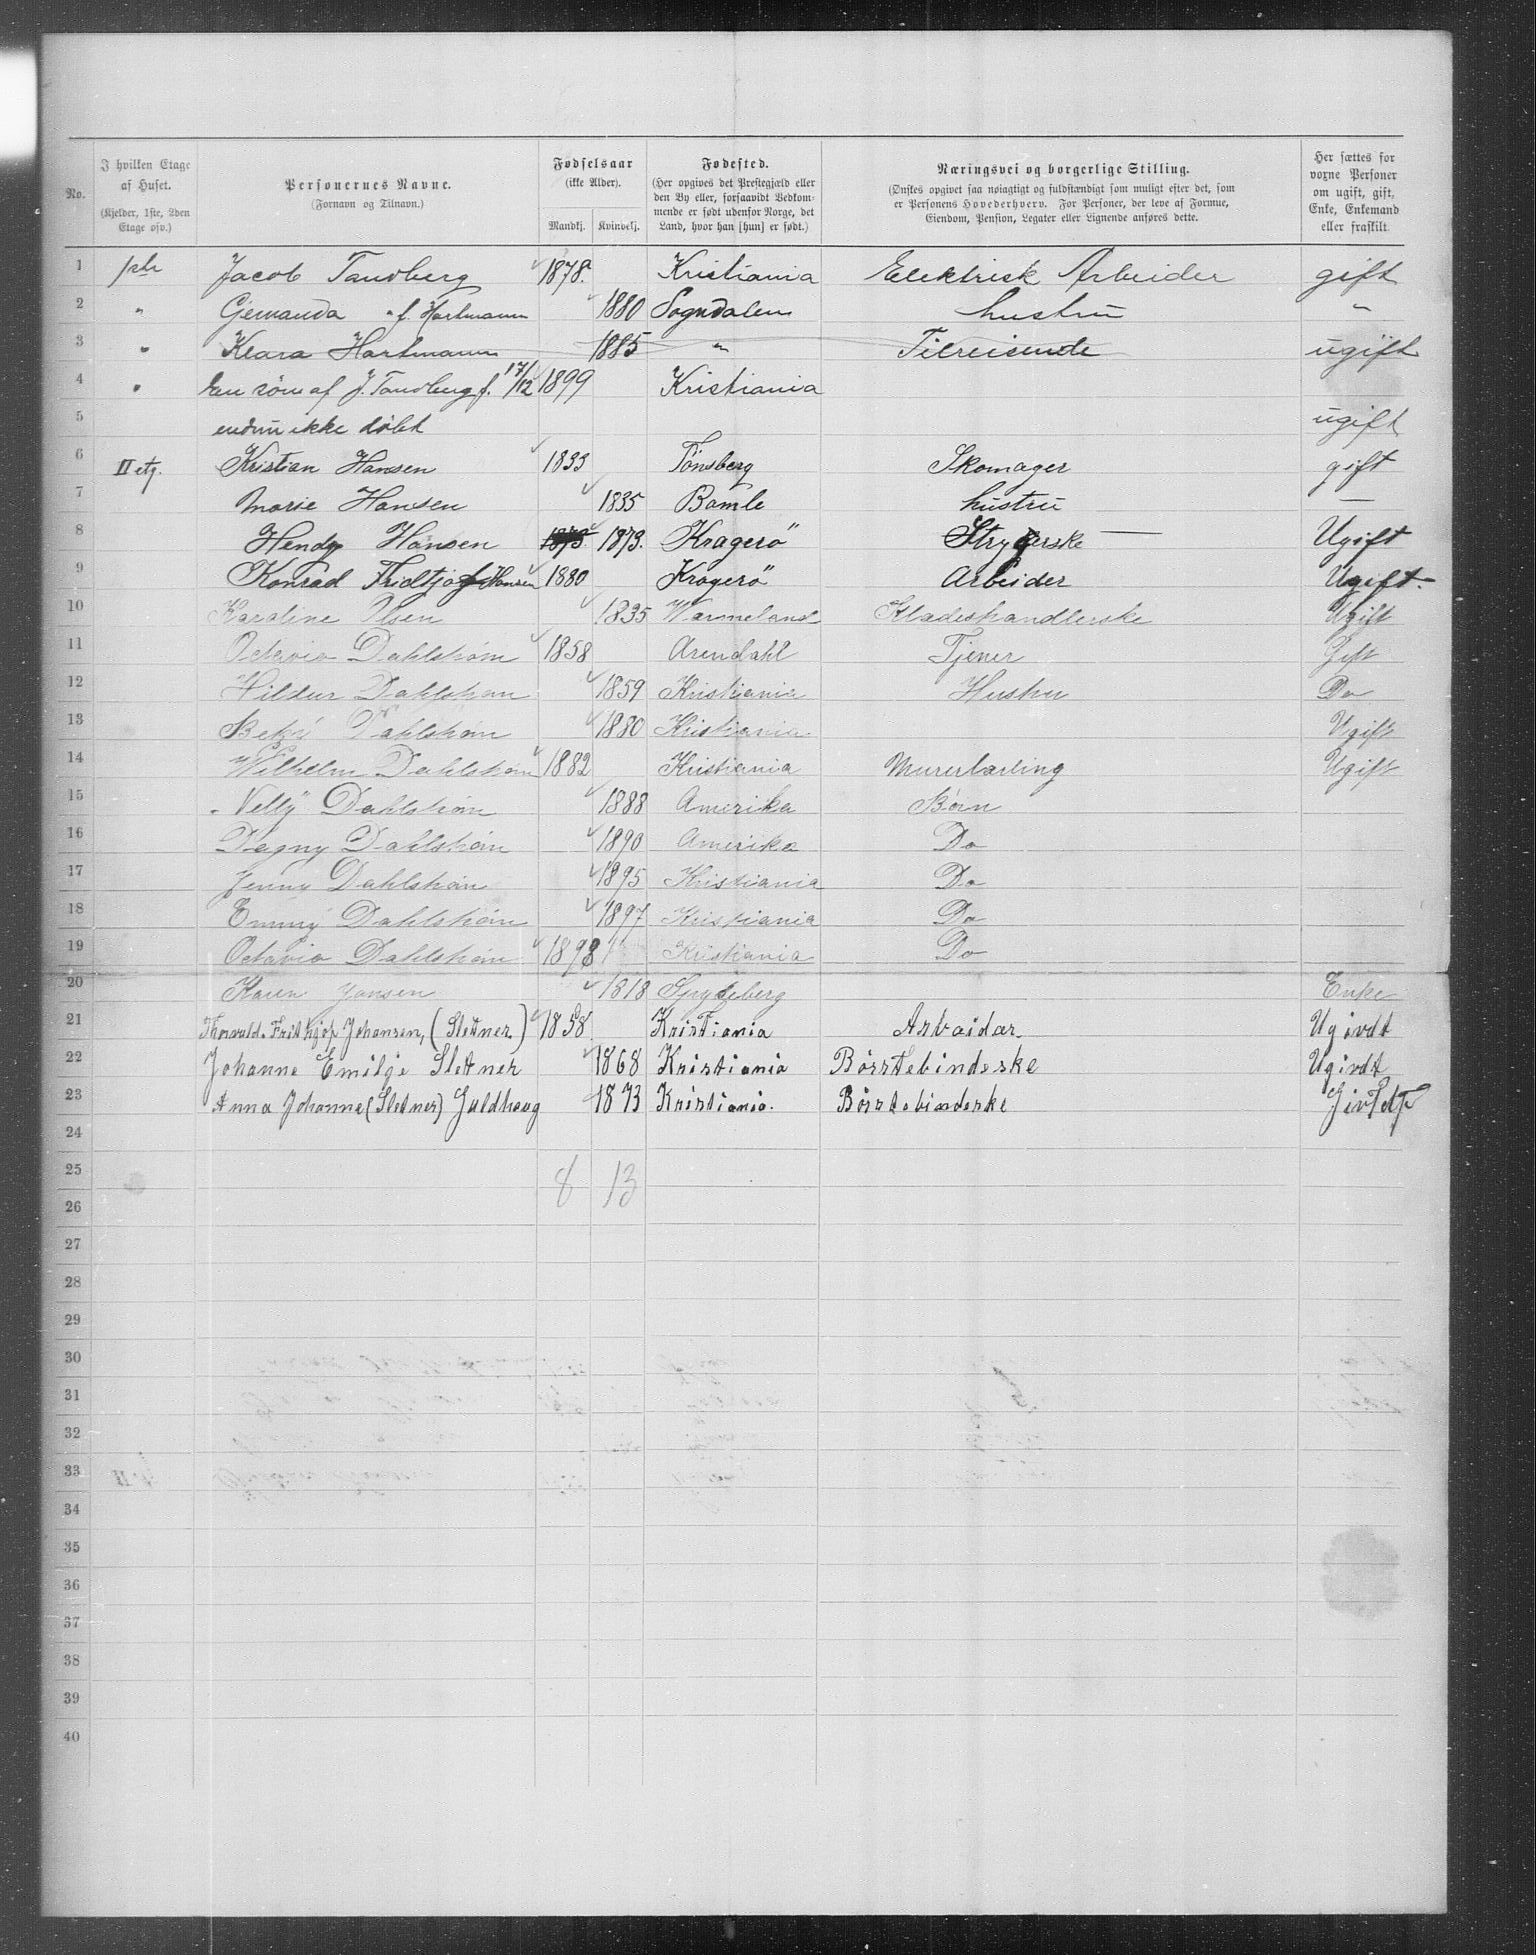 No.
I hvilken Etage af Huset.
(Kjelder, 1ste, 2den Etage osv.)
Personernes Navne.
(Fornavn og Tilnavn.)
Fødselsaar
(ikke Alder).
Mandkj. Kvindekj.
Fødested.
(Her opgives det Prestegjæld eller den By eller, forsaavidt Vedkommende er født udenfor Norge, det Land, hvor han [hun] er født.)
Næringsvei og borgerlige Stilling.
(Ønskes opgivet saa nøiagtigt og fuldstændigt som muligt efter det, som er Personens Hovederhverv. For Personer, der leve af Formue, Eiendom, Pension, Legater eller Lignende anføres dette.
Her sættes for voxne Personer om ugift, gift, Enke, Enkemand eller fraskilt.
1 ptr Jacob Tandberg 1878. Kristiania Elektrisk Arbeider gift
2 " Gemanda " f. Hartmann 1880 Sogndalen hustru "
3 " Klara Hartmann 1885 " Tilreisende ugift
4 " En søn af J. Tandberg f. 17/12 1899 Kristiania
5 endnu ikke døbt ugift
6 II etg. Kristian Hansen 1833 Tönsberg Skomager gift
7 Marie Hansen 1835 Bamle hustru —
8 Hendy Hansen 1873 1873. Kragerö Strygerske — Ugift
9 Konrad Fridtjof Hansen 1880 Kragerö Arbeider Ugift
10 Karoline Olsen 1835 Warmeland Kladeshandlerske Ugift
11 Octavio Dahlstrøm 1858 Arendahl Tjener Gift
12 Hildur Dahlstrøm 1859 Kristiania Hustru Do
13 Dahlstrøm 1880 Kristiania Ugift
14 Wilhelm Dahlstrøm 1882 Kristiania Murerlærling Ugift
15 Nelly Dahlstrøm 1888 Amerika Børn
16 Dagny Dahlstrøm 1890 Amerika Do
17 Jenny Dahlstrøm 1895 Kristiania Do
18 Emmy Dahlstrøm 1897 Kristiania Do
19 Octavio Dahlstrøm 1898 Kristiania Do
20 Karen Jansen 1818 Spydeberg Enke
21 Thorvald Frithjof Johansen, (Sletner.) 1858 Kristiania Arbaidar Ugivdt
22 Johanne Emilje Sletner 1868 Kristiania Börstebindeske Ugivdt
23 Anna Johanne (Sletner) Guldhaug 1873 Kristiania. Börstebinderske
24
25 8 13
26
27
28
29
30
31
32
33
34
35
36
37
38
39
40